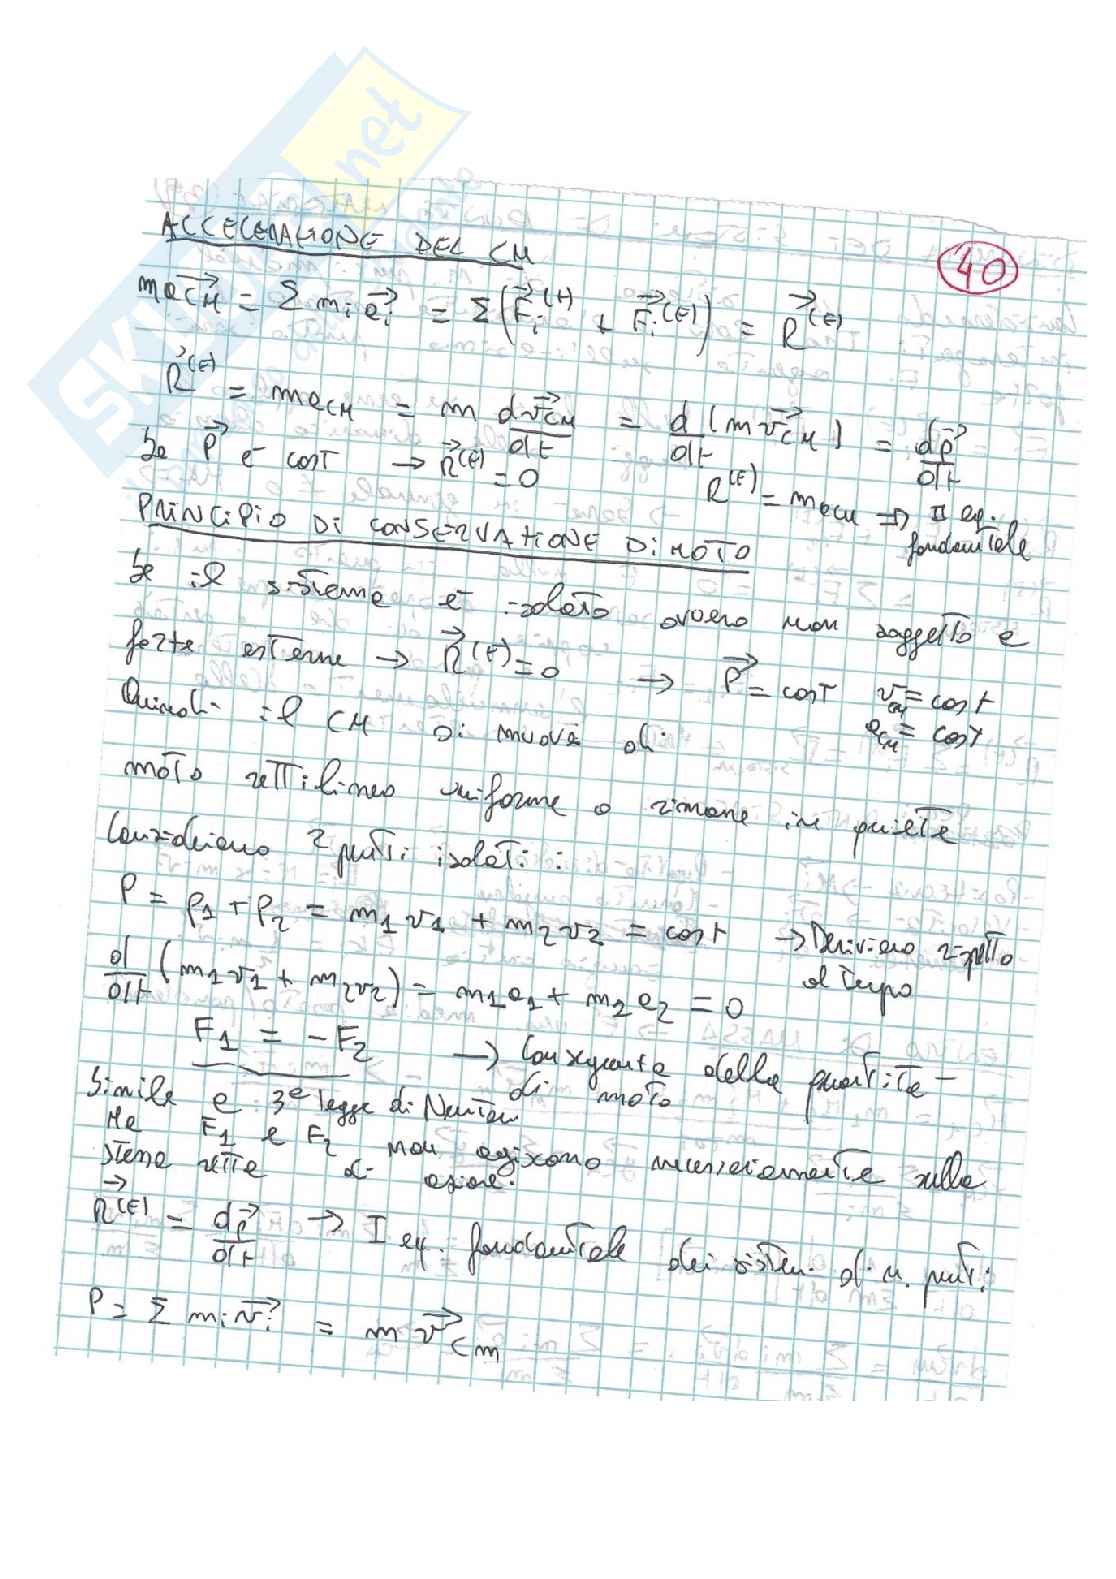 SKUOLA.net
40
ACCELERAZIONE DEL CM
m a⃗CM = Σ mi a⃗i = Σ (F⃗i(I) + F⃗i(E)) = R⃗(E)
R⃗(E) = m aCM = m dv⃗CM/dt = d/dt (m v⃗CM) = dp⃗/dt
Se P⃗ è cost → R⃗(E) = 0
R(E) = m aCM → II eq. fondamentale
PRINCIPIO DI CONSERVAZIONE DI MOTO
Se il sistema è isolato ovvero non soggetto a
forze esterne → R⃗(E) = 0 → P⃗ = cost vCM = cost
aCM = cost
Quindi il CM si muove di
moto rettilineo uniforme o rimane in quiete
Consideriamo 2 punti isolati:
P = p1 + p2 = m1 v1 + m2 v2 = cost → Deriviamo rispetto
al tempo
d/dt (m1 v1 + m2 v2) = m1 a1 + m2 a2 = 0
F1 = -F2 → Conseguenza della quantità
di moto
Simile a 3ª legge di Newton
Ma F1 e F2 non agiscono necessariamente sulla
stessa retta di azione.
R⃗(E) = dp⃗/dt → I eq. fondamentale dei sistemi di n. punti
P = Σ mi v⃗i = m v⃗cm